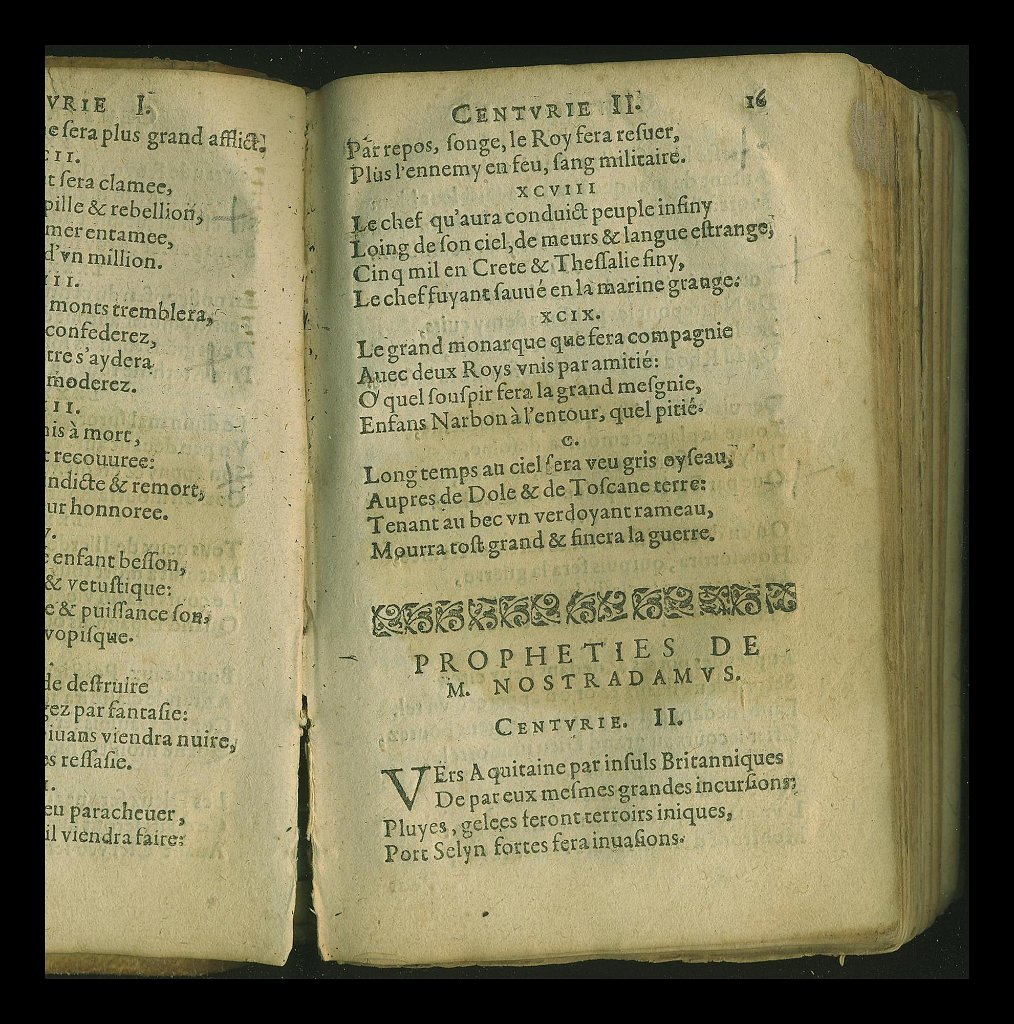 VRIE I.
e ſera plus grand afflict.
CII.
t ſera clamee,
pille & rebellion,
mer entamee,
d'vn million.
VII.
monts tremblera,
confederez,
tre s'aydera
moderez.
III.
nis à mort,
t recouuree:
ndicte & remort,
ur honnoree.
V.
e enfant beſſon,
& vetuſtique:
e & puiſſance ſon,
vopiſque.
de deſtruire
gez par fantaſie:
iuans viendra nuire,
os reſſaſie.
I.
eu paracheuer,
il viendra faire:
CENTVRIE II. 16
Par repos, ſonge, le Roy ſera reſuer,
Plus l'ennemy en feu, ſang militaire.
XCVIII
Le chef qu'aura conduict peuple infiny
Loing de ſon ciel, de meurs & langue eſtrange,
Cinq mil en Crete & Theſſalie finy,
Le chef fuyant ſauué en la marine grauge.
XCIX.
Le grand monarque que fera compagnie
Auec deux Roys vnis par amitié:
O quel ſouſpir fera la grand meſgnie,
Enfans Narbon à l'entour, quel pitié.
C.
Long temps au ciel ſera veu gris oyſeau,
Aupres de Dole & de Toſcane terre:
Tenant au bec vn verdoyant rameau,
Mourra toſt grand & finera la guerre.
PROPHETIES DE
M. NOSTRADAMVS.
CENTVRIE. II.
VErs Aquitaine par inſuls Britanniques
De par eux meſmes grandes incurſions;
Pluyes, gelees feront terroirs iniques,
Port Selyn fortes fera inuaſions.